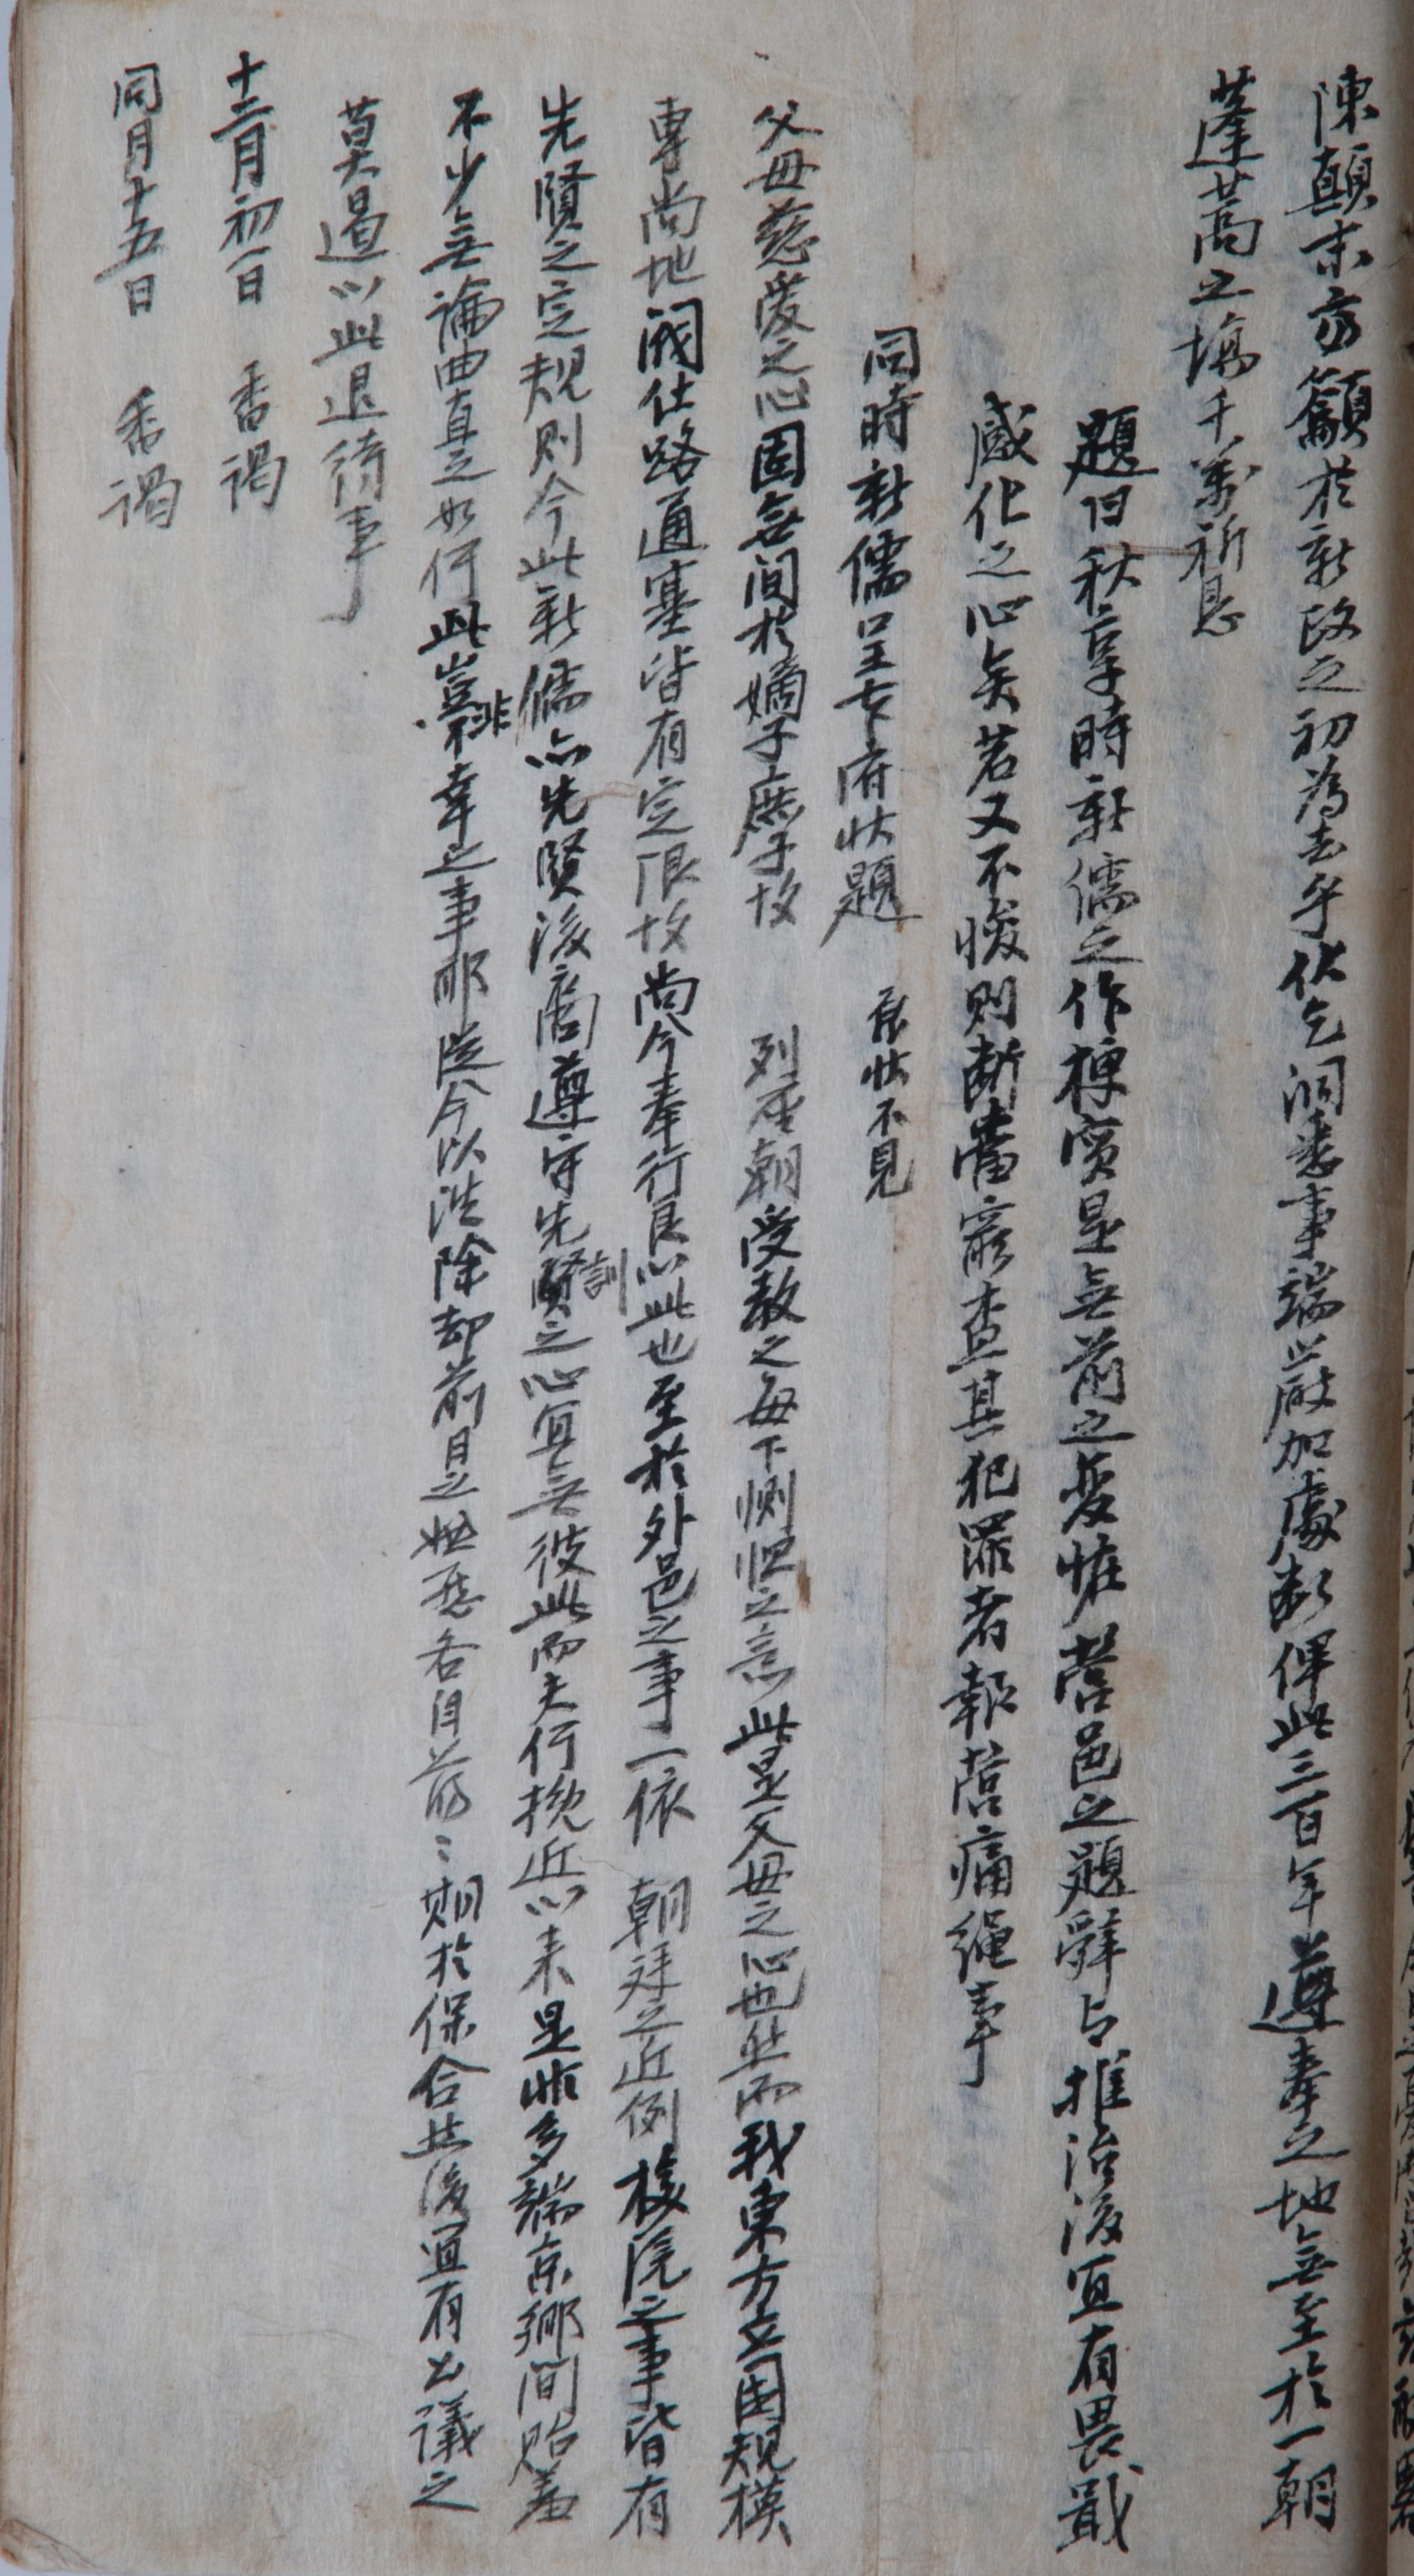 陳顛末方籲於新政之初為去乎伏乞洞悉事端嚴加處斷俾此三百年遵奉之地無至於一朝
蓬蒿之場千萬祈恳
題曰秋享時新儒之作梗實是無前之変惟營邑之題辞与推治後宜有畏戢
感化之心矣若又不悛則斷當窮查其犯罪者報營痛繩事
同時新儒呈下府状題 原状不見
父母慈愛之心固無间於嫡子庶子故 列座朝受教之每下惻怛之意此是父母之心也然而我東方立国規模
専尚地閥仕路通塞皆有定限故尚今奉行良以此也至於外邑之事一依 朝廷之近例校院之事皆有
先賢之定規則今此新儒亦先賢後裔遵守先賢訓之心宜無彼此而夫何挽近以来是非多端京鄉间貽羞
不少無論曲直之如何此豈不非幸之事耶從今以後除却前日之嫌惡各自前〻期於保合然後宜有出議之
莫遏以此退待事
十二月初一日 香謁
同月十五日 香謁